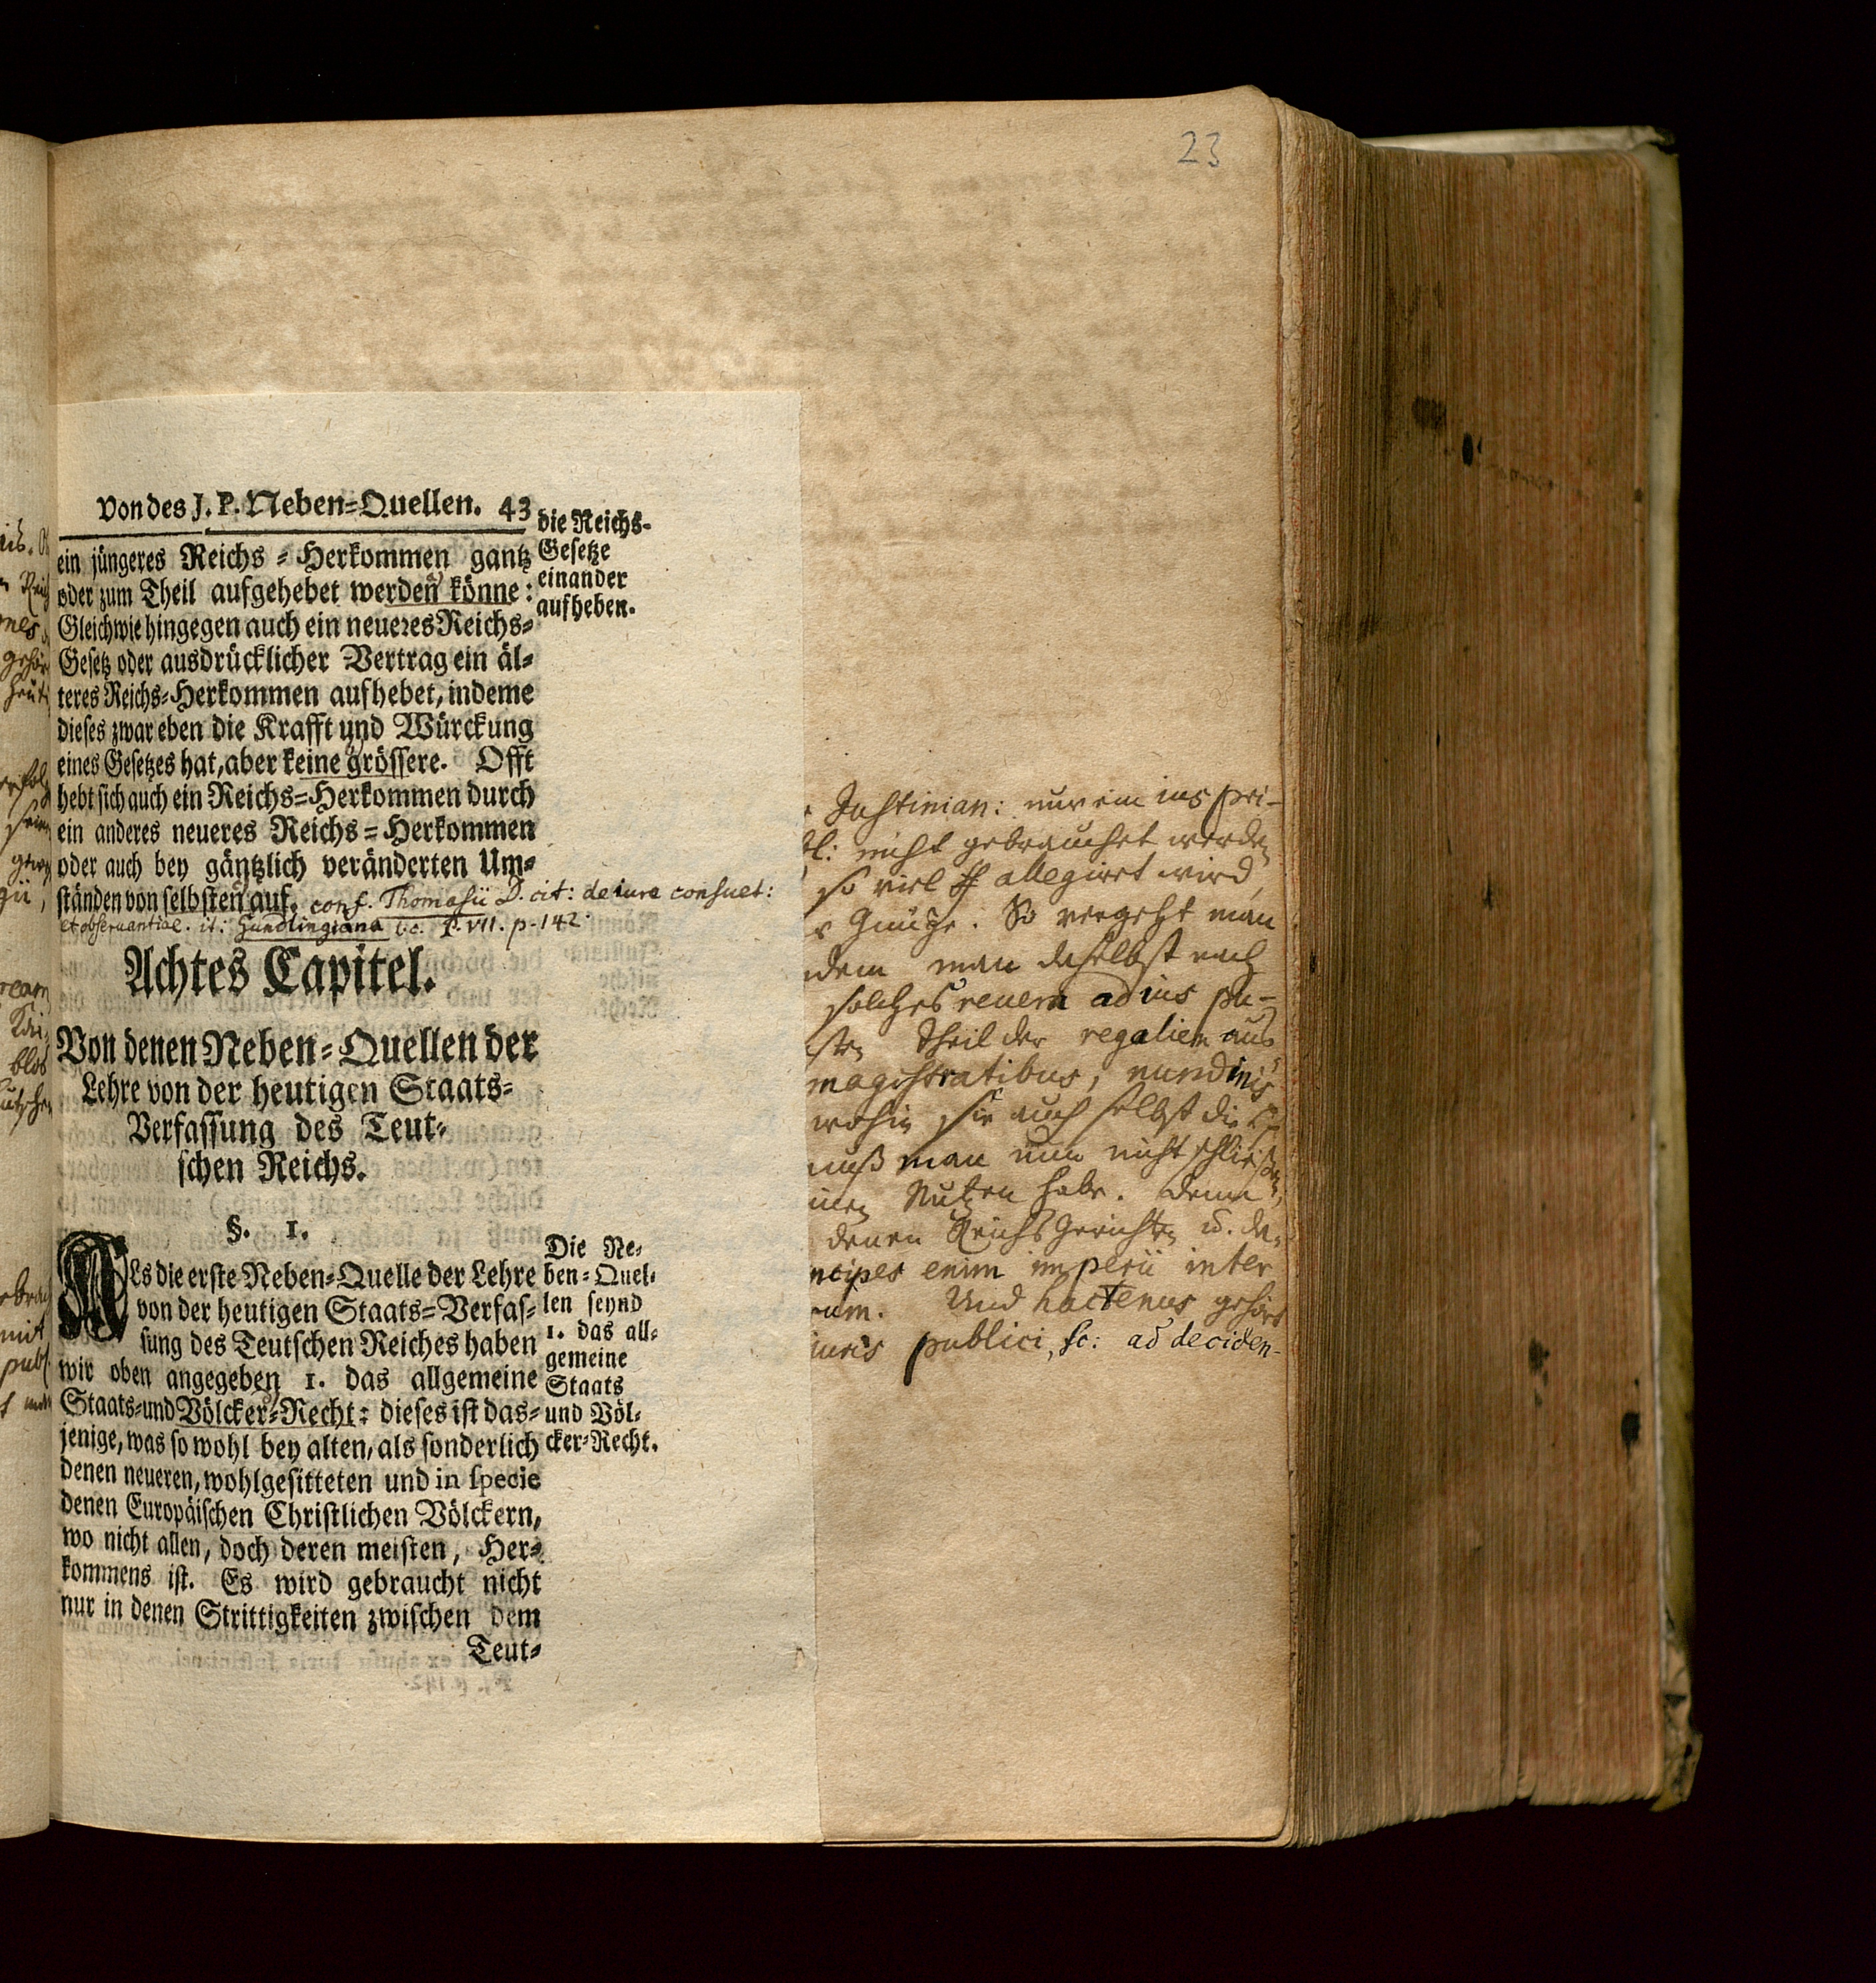 23
von des J. P. Neben-Quellen. 43
die Reichs-
Gesetze
einander
aufheben.
ein jüngeres Reichs-Herkommen gantz
oder zum Theil aufgehebet werden könne:
Gleichwie hingegen auch ein neueres Reichs-
Gesetz oder ausdrücklicher Vertrag ein äl-
teres Reichs-Herkommen aufhebet, indeme
dieses zwar eben die Krafft und Würckung
eines Gesetzes hat, aber keine grössere. Offt
hebt sich auch ein Reichs-Herkommen durch
ein anderes neueres Reichs-Herkommen
oder auch bey gäntzlich veränderten Um-
ständen von selbsten auf. conf. Thomasii D. cit: de iure consuet:
et obseruantiae. it: Gundlingiana P. VII. p. 142.
Achtes Capitel.
Von denen Neben-Quellen der
Lehre von der heutigen Staats-
Verfassung des Teut-
schen Reichs.
§. 1.
ALs die erste Neben-Quelle der Lehre
von der heutigen Staats-Verfas-
sung des Teutschen Reiches haben
wir oben angegeben 1. das allgemeine
Staats- und Völcker-Recht: dieses ist das-
jenige, was so wohl bey alten, als sonderlich
denen neueren, wohlgesitteten und in specie
denen Europäischen Christlichen Völckern,
wo nicht allen, doch deren meisten, Her-
kommens ist. Es wird gebraucht nicht
nur in denen Strittigkeiten zwischen dem
Teut-
Die Ne-
ben-Quel-
len seynd
1. das all-
gemeine
Staats
und Völ-
cker-Recht.
Justinian: nur ein ius pri-
nicht gebrauchet werden
so viel ff allegiret wird,
Gnüge. So vergeht man
dem man daselbst auch
solches reuera ad ius pu-
sten Theil der regalien aus
magistratibus, nundinis
wohin sie auch selbst die
muß man nun nicht schließen,
Nutzen habe. denn
denen Reichs Gerichten u. de-
ncipes enim imperii inter
Und hactenus gehört
iuris publici, sc: ad deciden-